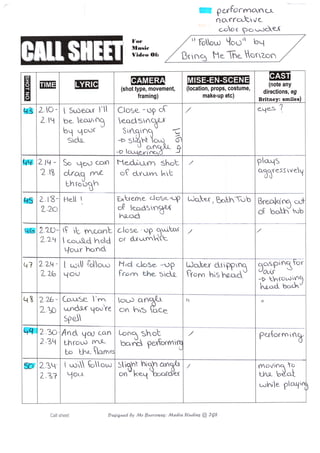 performance
narrative
color powder
CALL SHEET
For
Music
Video 06
"Follow You" by
Bring Me The Horizon
ON TOP?
TIME
LYRIC
CAMERA
(shot type, movement,
framing)
MISE-EN-SCENE
(location, props, costume,
make-up etc)
CAST
(note any
directions, eg
Britney: smiles)
43
2.10-
2.14
I swear I'll
be leaving
by your
side
Close-up of
leadsinger
Singing
-o slight low
angle
-o lowering
/
eyes ?
44
2.14-
2.18
So you can
drag me
through
Medium shot
of drum kit
/
plays
aggressively
45
2.18-
2.20
Hell !
Extreme close-up
of leadsinger
head
Water, Bath Tub
Breaking out
of bath tub
46
2.20-
2.24
if it meant
I could hold
your hand
close-up guitar
or drumkit
/
/
47
2.24-
2.26
I will follow
you
Mid close-up
from the side
Water dripping
from his head
gasping for
air
-o throwing
head back
48
2.26-
2.30
Cause I'm
under you're
spell
low angle
on his face
"
"
49
2.30-
2.34
And you can
throw me
to the flames
Long shot
band performing
/
performing
50
2.34-
2.37
I will follow
you
Slight high angle
on keyboarder
/
moving to
the beat
while playing
Call sheet